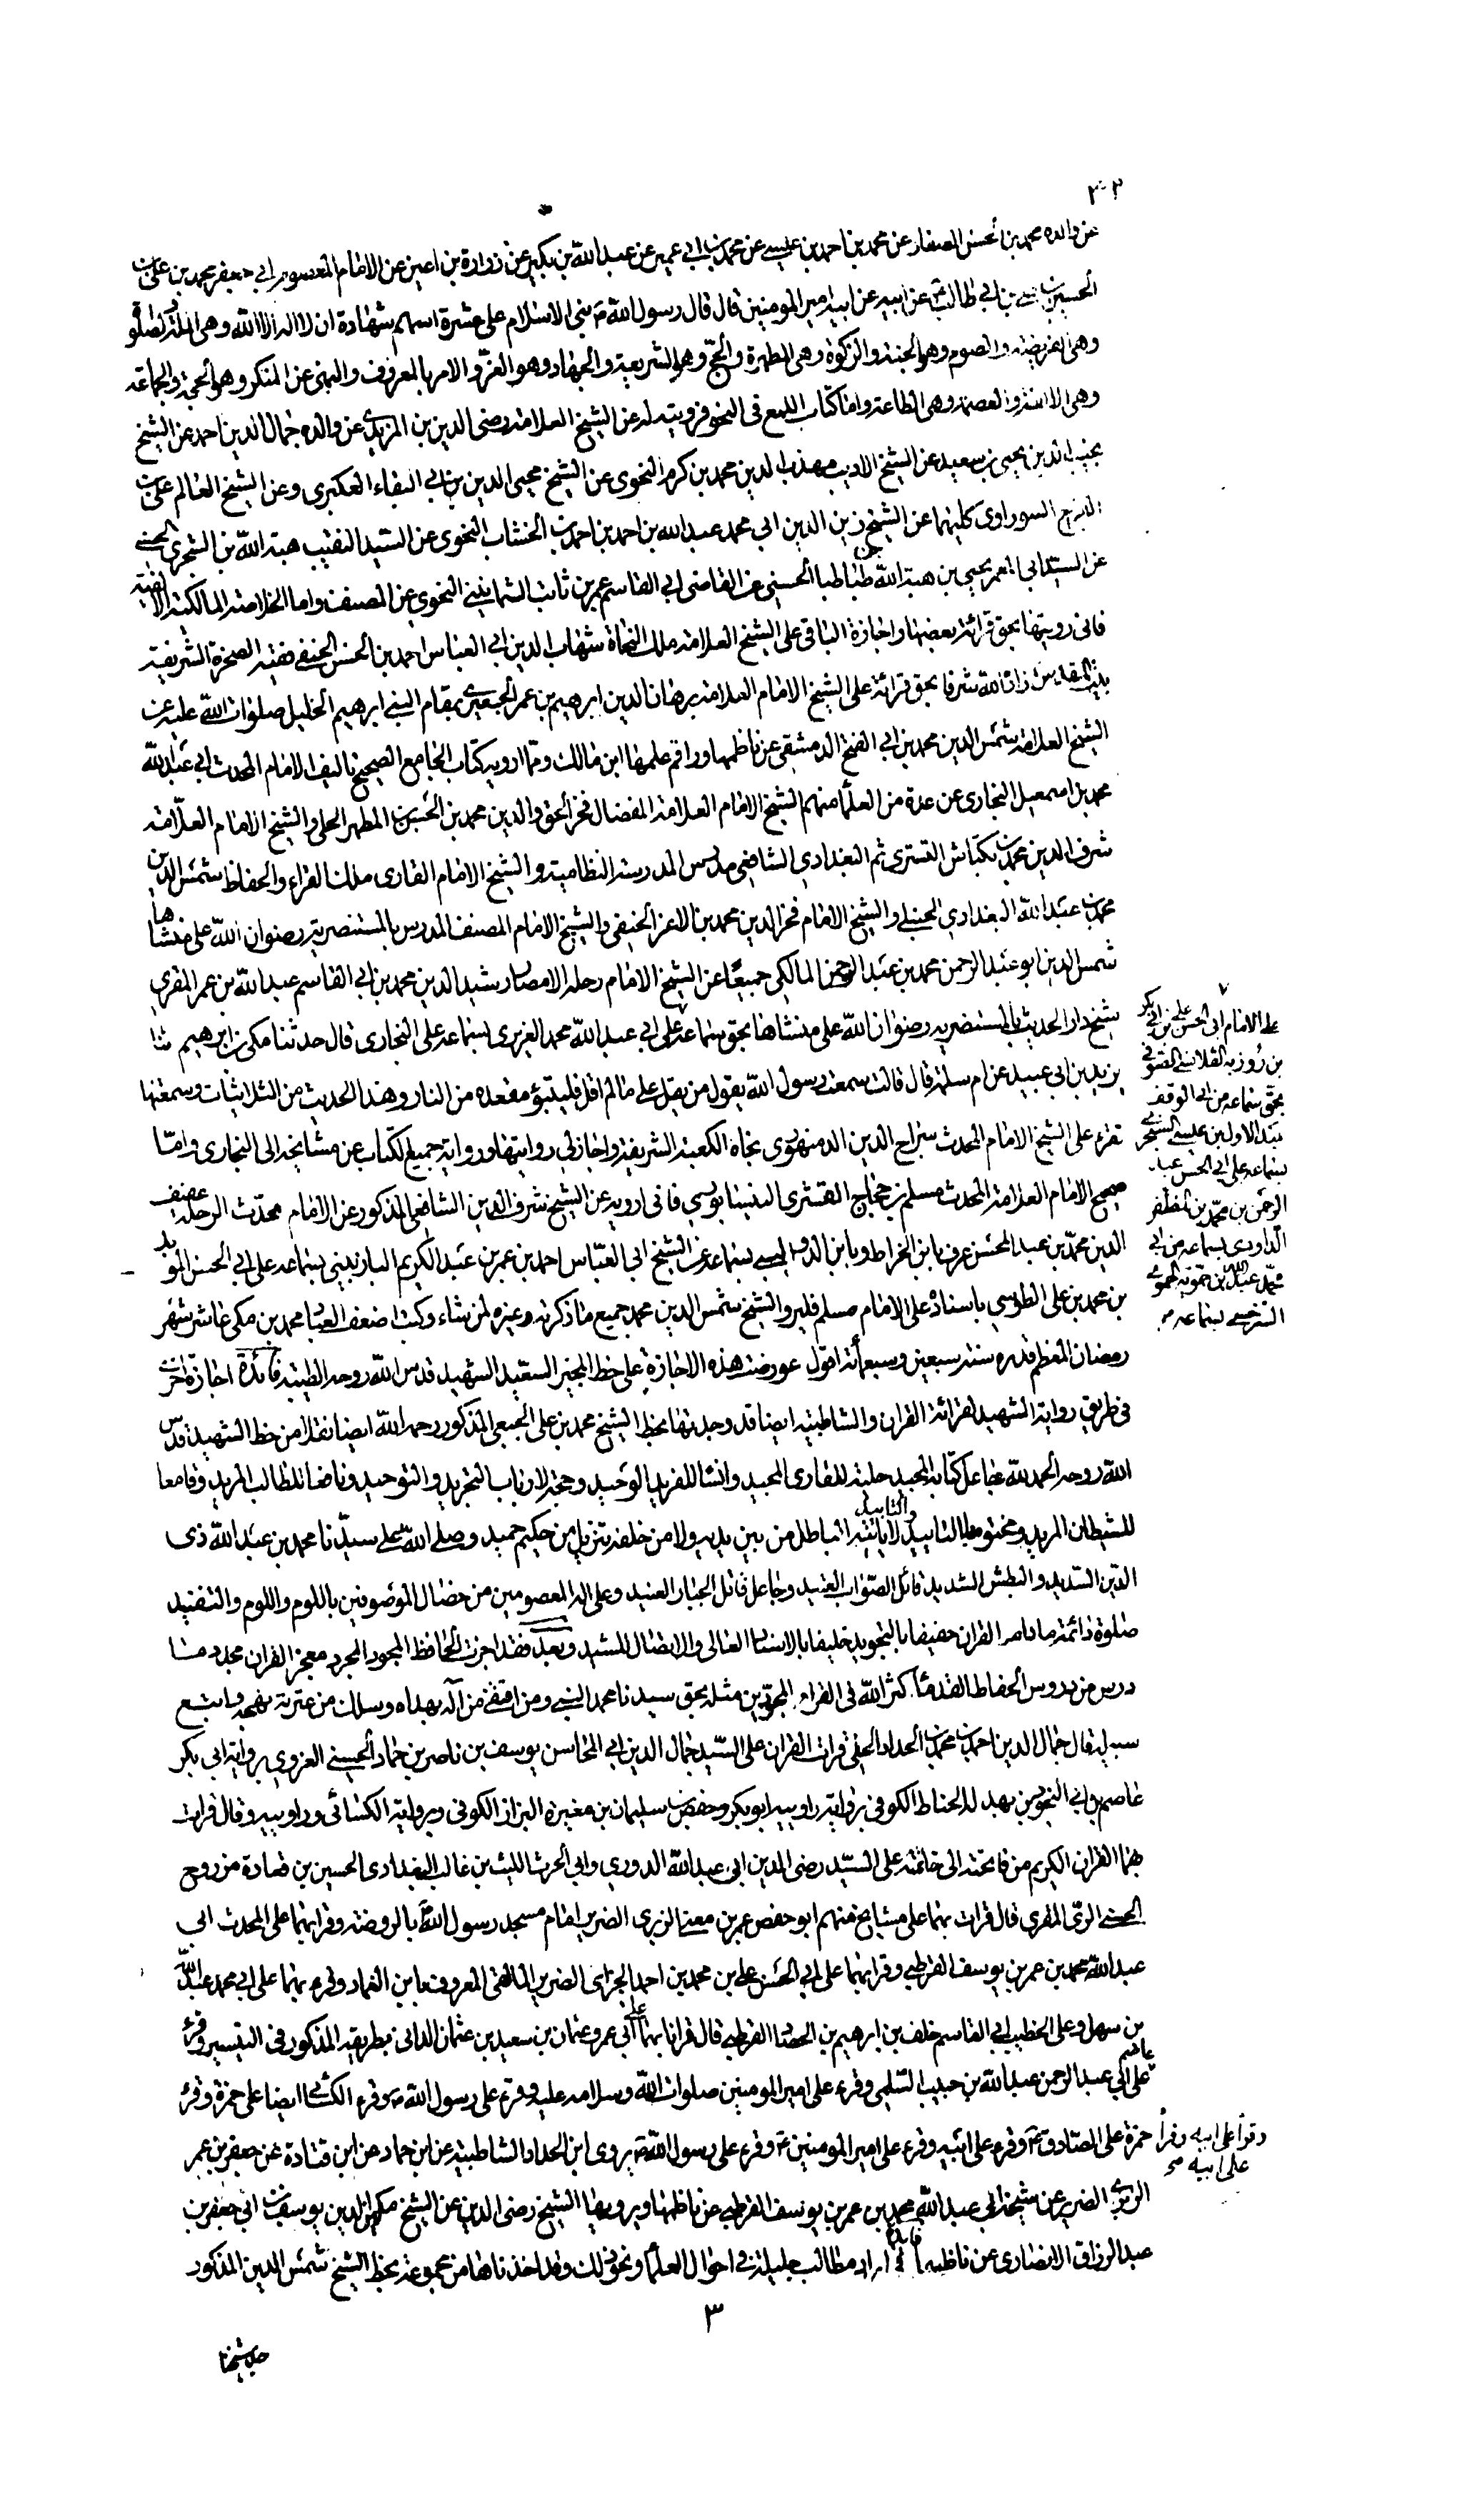 ٢٠٢
عن والده محمد بن الحسن الصفار عن محمد بن احمد بن عيسى عن محمد بن ابى عمير عن عبد الله بن بكير عن زرارة بن اعين عن الامام المعصوم ابى جعفر محمد بن على بن
الحسين بن على بن ابى طالب عن ابيه عن ابيه امير المومنين قال قال رسول الله ص بنى الاسلام على عشرة اسهم شهادة ان لا اله الا الله وهى الملة والصلوة
وهى الفريضة والصوم وهو الجنة والزكوة وهى المطهرة والحج وهو الشريعة والجهاد وهو العز والامر بالمعروف والنهى عن المنكر وهو الحجة والجماعة
وهى الالفة والعصمة وهى الطاعة واما كتاب اللمع فى النحو فرويته له عن الشيخ العلامة رضى الدين بن المزيدى عن والده جمال الدين احمد عن الشيخ
نجيب الدين يحيى بن سعيد عن الشيخ الاديب مهذب الدين محمد بن كرم النحوى عن الشيخ محيى الدين بن ابى البقاء العكبرى وعن الشيخ العالم على بن
الفرج السوراوى كليهما عن الشيخ زين الدين ابى محمد عبد الله بن احمد بن احمد بن الخشاب النحوى عن السيد النقيب هبة الله بن الشجرى الحسنى
عن السيد ابى المعمر يحيى بن هبة الله بن طباطبا الحسنى عن القاضى ابى القاسم عمر بن ثابت الثمانينى النحوى عن المصنف واما الخلاصة المالكية الالفية
فانى رويتها بحق قرائة بعضها واجازة الباقى على الشيخ العلامة ملك النحاة شهاب الدين ابى العباس احمد بن الحسن الحنفى فقيه الصخرة الشريفة
ببيت المقدس زاده الله شرفا بحق قرائة على الشيخ الامام العلامة برهان الدين ابرهيم بن عمر الجعبرى بمقام النبى ابرهيم الخليل صلوات الله عليه عن
الشيخ العلامة شمس الدين محمد بن ابى الفتح الدمشقى عن ناظمها وراقم علمها ابن مالك ومما ارويه كتاب الجامع الصحيح تاليف الامام المحدث ابى عبد الله
محمد بن اسمعيل البخارى عن عدة من العلما منهم الشيخ الامام العلامة المفضال فخر الحق والدين محمد بن الحسن بن المطهر الحلى والشيخ الامام العلامة
شرف الدين محمد بن بكتاش التسترى ثم البغدادى الشافعى مدرس المدرسة النظامية والشيخ الامام القارى ملك القراء والحفاظ شمس الدين
محمد بن عبد الله البغدادى الحنبلى والشيخ الامام فخر الدين محمد بن الاعز الحنفى والشيخ الامام المصنف المدرس بالمستنصرية رضوان الله على منشاها
شمس الدين ابو عبد الرحمن محمد بن عبد الرحمن المالكى جميعا عن الشيخ الامام رحلة الامصار رشيد الدين محمد بن ابى القاسم عبد الله بن عمر المقرى
شيخ دار الحديث بالمستنصرية رضوان الله على منشاها بحق سماعه على ابى عبد الله محمد الفربرى بسماعه على البخارى قال حدثنا مكى بن ابرهيم ثنا
يزيد بن ابى عبيد عن ام سلمة قال قالت سمعت رسول الله يقول من يقل على ما لم اقل فليتبؤ مقعده من النار وهذا الحديث من الثلاثيات وسمعتها
تقرء على الشيخ الامام المحدث سراج الدين الدمنهورى تجاه الكعبة الشريفة واجاز لى روايتها ورواية جميع الكتاب عن مشايخه الى البخارى واما
صحيح الامام العلامة المحدث مسلم بن حجاج القشرى النيسابورى فانى ارويه عن الشيخ شرف الدين الشافعى المذكور عن الامام محدث الرحلة عفيف
الدين محمد بن عبد المحسن عرف بابن الخراط وبابن الدواليبى بسماعه عن الشيخ ابى العباس احمد بن عمر بن عبد الكريم الباذبينى بسماعه على ابى الحسن المويد
بن محمد بن على الطوسى باسناده على الامام مسلم فليرو الشيخ شمس الدين محمد جميع ما ذكرته وغيره لمن شاء وكتب اضعف العباد محمد بن مكى عاشر شهر
رمضان المعظم قدره سنة سبعين وسبعمائة اقول عورضت هذه الاجازة على خط المجيز السعيد الشهيد قدس الله روحه الطيبة فائدة اجازة اخرى
فى طريق رواية الشهيد لقرائة القران والشاطبية ايضا قد وجدتها بخط الشيخ محمد بن على الجبعى المذكور رحمه الله ايضا نقلا من خط الشهيد قدس
الله روحه الحمد لله جاعل كتابه المجيد حلية للقارى المجيد وانسا للفريد الوحيد وحجة لارباب التجريد والتوحيد وناضا لطالب المريد وقامعا
للشيطان المريد ومختوما بالتاييد والتابيد لا ياتيه الباطل من بين يديه ولا من خلفه تنزيل من حكيم حميد وصلى الله على سيدنا محمد بن عبد الله ذى
الدين السديد والبطش الشديد قائل الصواب العتيد وجاعل قاتل الجبار العنيد وعلى اله المعصومين من خصال الموصوفين باللوم واللوم والتفنيد
صلوة دائمة ما دام القران حفيفا بالتجويد خليفا بالاسناد العالى والايصال للسيد وبعد فقد اجزت للحافظ المجود المجرد معجز القران مجدد ما
درس من دروس الحفاظ القدماء كثر الله فى القراء المجودين مثله بحق سيدنا محمد النبى ومن اقتفى من آله بهداه وسلك من عترته نهجه واتبع
سبيله قال جمال الدين احمد بن محمد بن الحداد الحلى قرات القران على السيد جمال الدين ابى المحاسن يوسف بن ناصر بن حماد الحسينى الغروى برواية ابى بكر
عاصم بن ابى النجود بن بهدلة الحناط الكوفى برواية راوييه ابو بكر وحفص بن سليمان بن مغيرة البزاز الكوفى وبرواية الكسائى وراوييه وقال قرات
بهما القران الكريم من فاتحته الى خاتمته على السيد رضى الدين ابى عبد الله الدورى وابى الحرث الليث بن غالب البغدادى الحسين بن قتادة مزروع
الحسنى الرقى المقرى قال قرات بهما على مشايخ منهم ابو حفص عمر بن معن الزبرى الضرير امام مسجد رسول الله بالروضة وقرا بهما على المحدث ابى
عبد الله محمد بن عمر بن يوسف القرطبى وقرا بهما على ابى الحسن على بن محمد بن احمد الجزاى الضرير المالقى المعروف بابن الغماد وقرء بهما على ابى محمد عبد الله
بن سهل وعلى الخطيب ابى القاسم خلف بن ابرهيم بن الحصار القرطبى قال قرانا بهما على ابى عمرو عثمان بن سعيد بن عثمان الدانى بطريقه المذكور فى التيسير وقرء
عاصم على ابى عبد الرحمن عبد الله بن حبيب السلمى وقرء على امير المومنين صلوات الله وسلامه عليه وقرء على رسول الله ص وقرء الكسائى ايضا على حمزة وقرء
حمزة على الصادق ع وقرء على ابيه وقرء على امير المومنين ع وقرء على رسول الله ص يروى ابن الحداد الشاطبية عن ابن حماد عن ابن قتادة عن حفص بن عمر
الزبرى الضرير عن شيخه ابى عبد الله محمد بن عمر بن يوسف القرطبى عن ناظمها ويرويها الشيخ رضى الدين عن الشيخ مكين الدين يوسف بن ابى جعفر بن
عبد الرزاق الانصارى عن ناظمها فائدة فى ايراد مطالب جليلة فى احوال العلماء ونحو ذلك وقد اخذناها من مجموعة بخط الشيخ شمس الدين المذكور
على الامام ابى الحسن على بن ابى بكر
بن روزبه القلانسى الصوفى
بحق سماعه من ابى الوقت
عبد الاول بن عيسى السجزى
بسماعه على ابى الحسن عبد
الرحمن بن محمد بن المظفر
الداودى بسماعه من ابى
محمد عبد الله بن حمويه الحموى
السرخسى بسماعه صح
وقرأ على ابيه وقرأ
على ابيه صح
٣